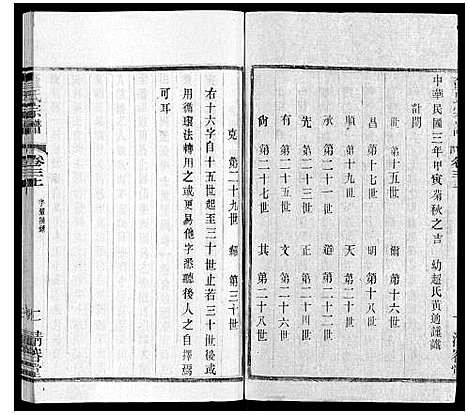 中華民國三年甲寅菊秋之吉　幼超氏黃　謹識
計開
第十五世　爾　第十六世
昌　第十七世　明　第十八世
順　第十九世　道　第二十世
承　第二十一世　德　第二十二世
先　第二十三世　正　第二十四世
有　第二十五世　文　第二十六世
尙　第二十七世　其　第二十八世
克　第二十九世　第三十世
右十六字自十五世起至三十世止若三十世後或
用循環法轉用之或更易他字悉聽後人之自擇焉
可耳
氏宗譜
卷三上